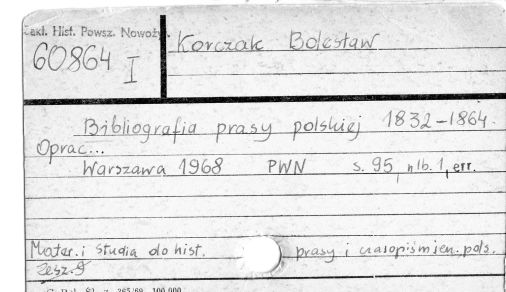 Zakł. Hist. Powsz. Nowoż.
60864 I
Korczak Bolesław
Bibliografia prasy polskiej 1832-1864.
Oprac...
Warszawa 1968 PWN s. 95, nlb. 1, err.
Mater. i studia do hist. prasy i czasopiśmien. pols.
Zesz. 9